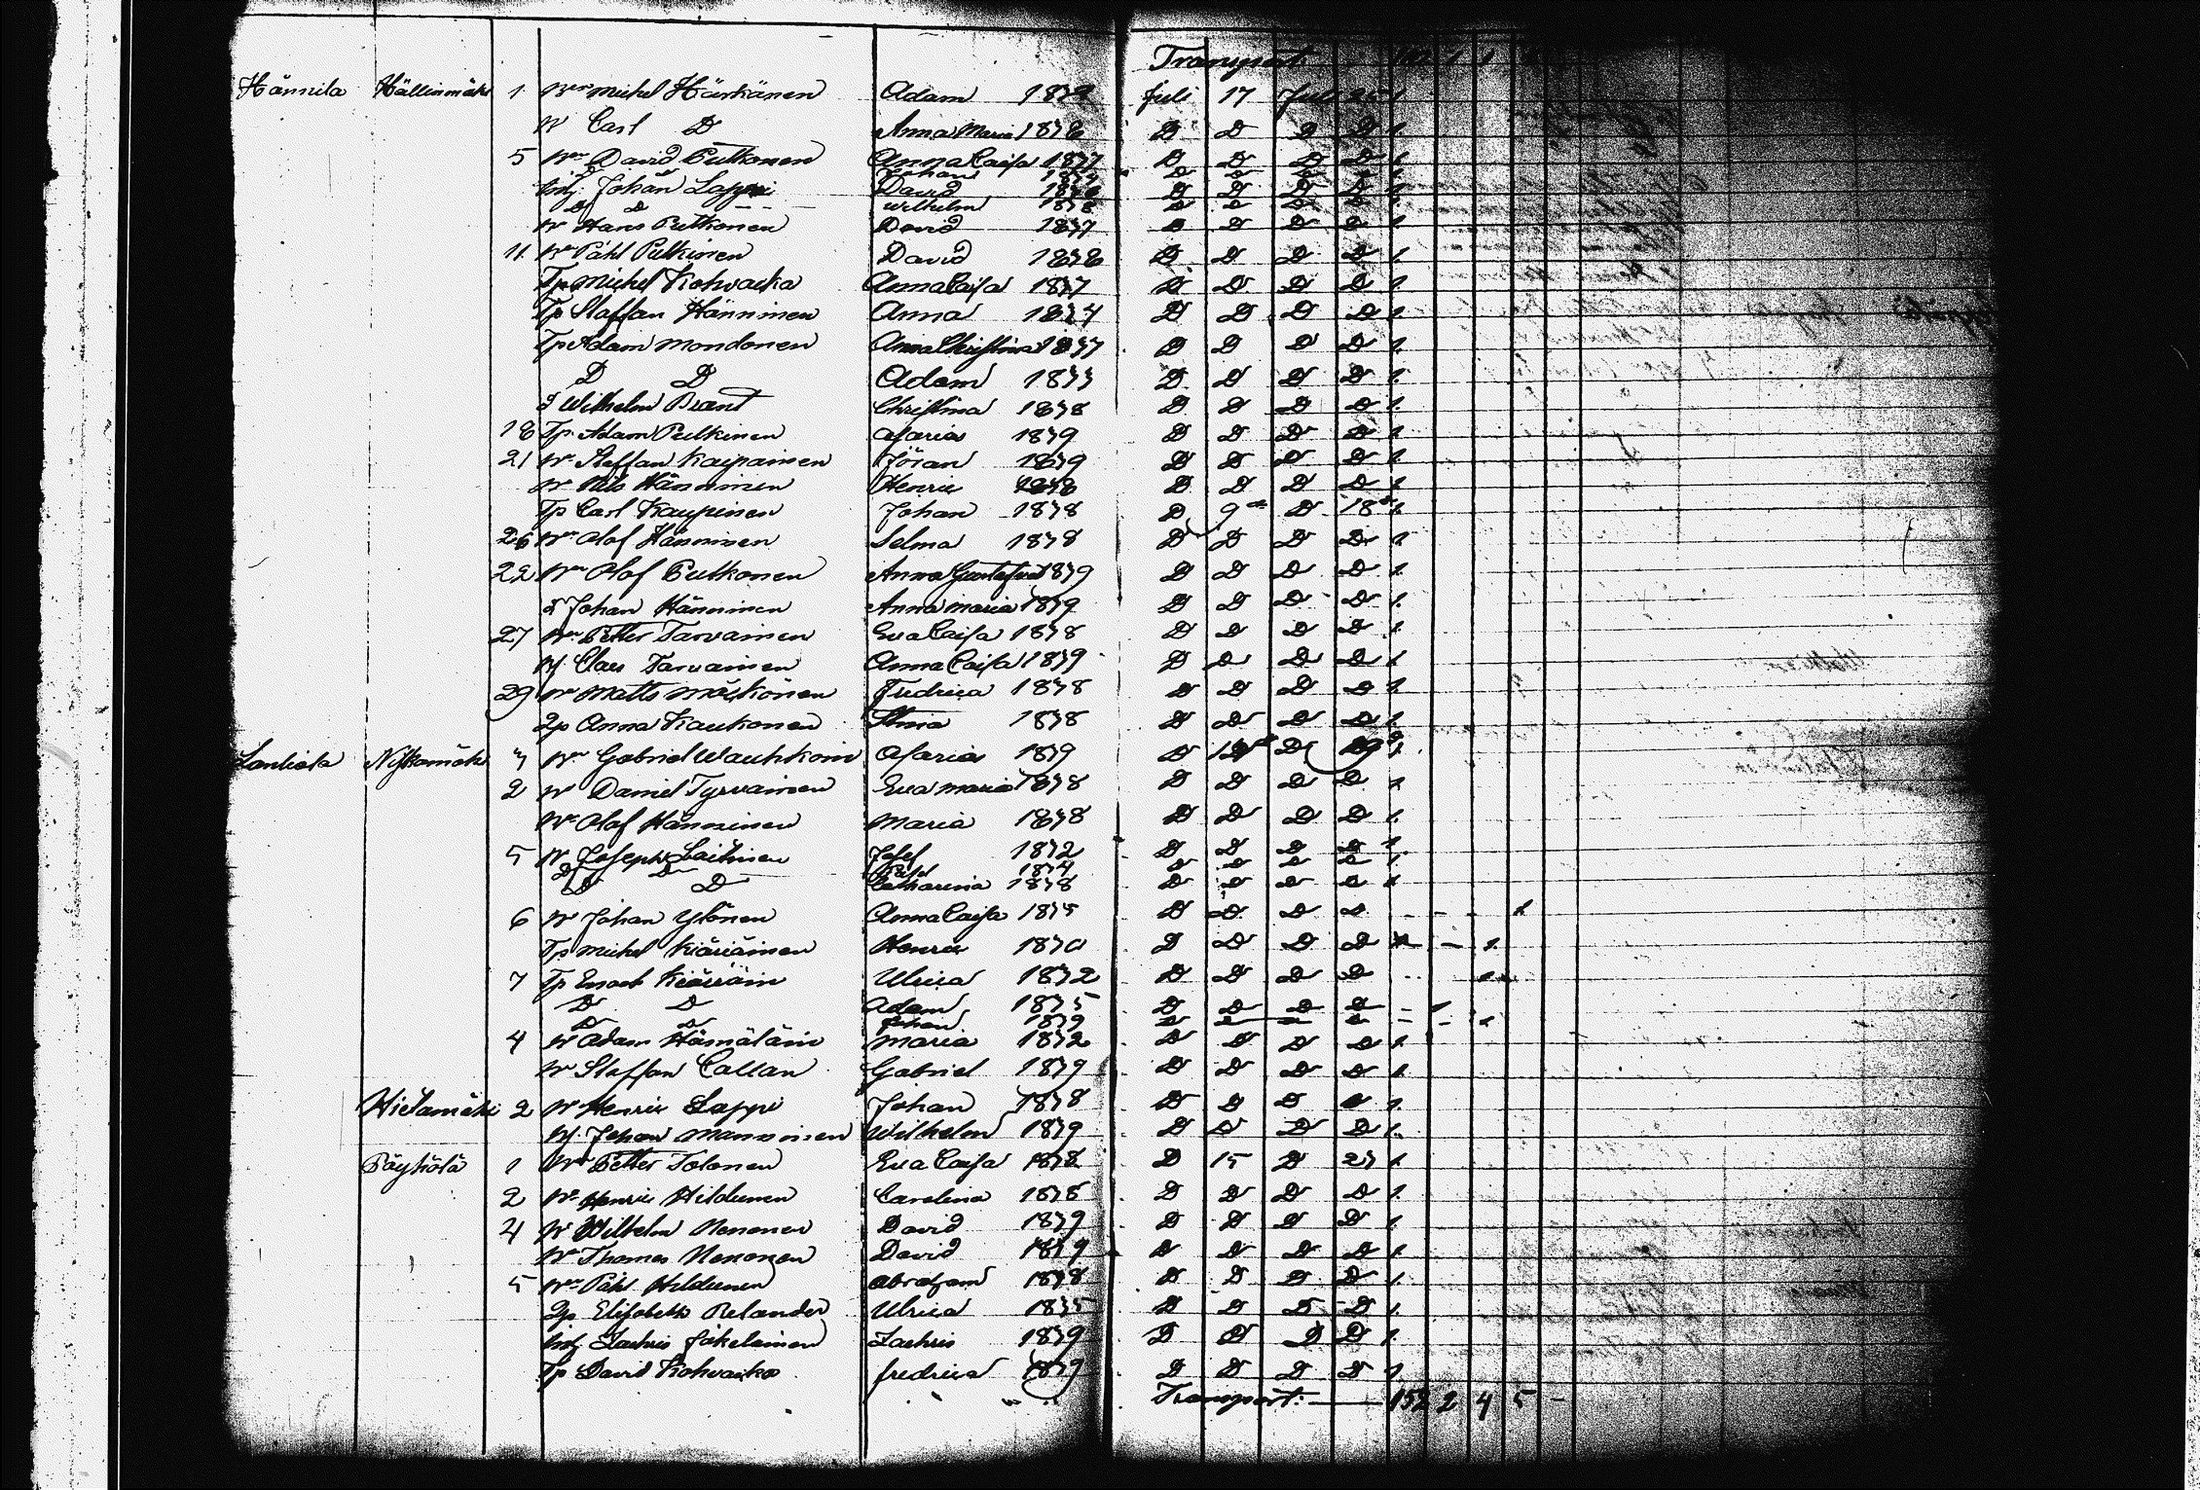 Transport
Hännilä Hällinmäki 1 Bn Michel Härkänen Adam 1879 Juli 17 Juli 25 1.
Bn Carl D Anna Maria 1878 D D D D 1.
5 Bn David Putkonen Anna Caisa 1877 D D D D 1.
Johan D D D D 1.
Inh. Johan Lappi David D D D D 1.
D D Wilhelm 1878 D D D D 1.
Bn Hans Putkonen David 1877 D D D D 1.
11 Bn Påhl Pulkinen David 1878 D D D D 1.
Tp Michel Kohvacka Anna Caisa 1877 D D D D 1.
Tp Staffan Hänninen Anna 1874 D D D D 1.
Tp Adam Mondonen Anna Christina 1877 D D D D 1.
D D Adam 1873 D D D D 1.
Wilhelm Brant Christina 1878 D D D D 1.
18 Tp Adam Pulkinen Maria 1879 D D D D 1.
21 Bn Staffan Kaipainen Jöran 1879 D D D D 1.
Bn Nils Hänninen Henric 1878 D D D D 1.
Tp Carl Kaupinen Johan 1878 D 9 D 18 1.
26 Bn Olof Hänninen Selma 1878 D D D D 1.
22 Bn Olof Putkonen Anna Gustafva 1879 D D D D 1.
Johan Hänninen Anna Maria 1879 D D D D 1.
27 Bn Petter Tarvainen Eva Caisa 1878 D D D D 1.
Claes Tarvainen Anna Caisa 1879 D D D D 1.
29 Bn Matts Möykönen Fredrica 1878 D D D D 1.
Anna Kaukonen Stina 1878 D D D D 1.
Nykämäki Bn Gabriel Wauhkoin Maria 1879 D D 1.
2 Bn Daniel Tyrväinen Eva Maria 1878 D D D D 1
Bn Olof Hänninen Maria 1878 D D D D 1.
5 Bn Joseph Laitinen Josef 1872 D D D D 1.
D D 1874 D D D D 1.
D D Catharina 1878 D D D D 1
6 Bn Johan Ylönen Anna Caisa 1875 D D D D 1
Tp Michel Kiäriäinen Henric 1870 D D D D 1.
7 Tp Enock Kiäriäin Ulrica 1872 D D D D 1
D D Adam 1875 D D D D 1
D D Johan 1879 D D D D 1
4 Bn Adam Hämäläin Maria 1872 D D D D 1.
Bn Staffan Callan Gabriel 1879 D D D D 1.
Hietamäki 2 Bn Henric Lappi Johan 1878 D D D D 1.
Johan Manninen Wilhelm 1879 D D D D 1.
Pöyhölä 1 Bn Petter Tolonen Eva Caisa 1878 D 15 D 23 1.
2 Bn Henric Hildunen Carolina 1878 D D D D 1.
4 Bn Wilhelm Nenonen David 1879 D D D D 1.
Bn Thomas Nenonen David 1879 D D D D 1.
5 Bn Påhl Hildunen Abraham 1878 D D D D 1.
Elisabeth Relander Ulrica 1875 D D D D 1.
Inh. Zachris Jökelainen Zachris 1879 D D D D 1.
Tp David Kohvacka Fredrica 1879 D D D D 1.
Transport: 152 2 4 5 -